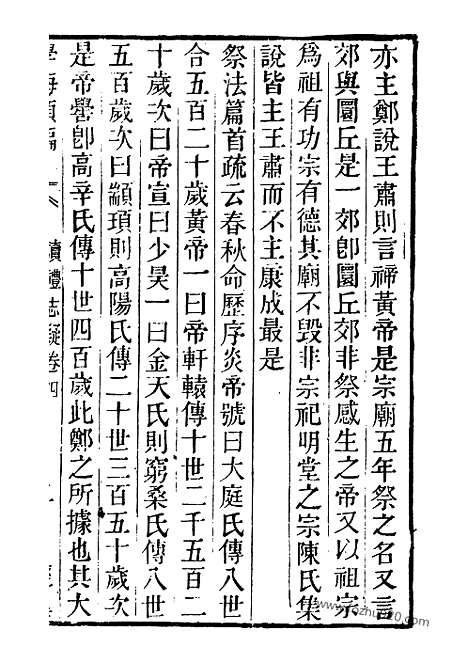 亦主鄭說王肅則言禘黃帝是宗廟五年祭之名又言
郊與圜丘是一郊卽圜丘郊非祭感生之帝又以祖宗
爲祖有功宗有德其廟不毀非宗祀明堂之宗陳氏集
說皆主王肅而不主康成最是
祭法篇首疏云春秋命歷序炎帝號曰大庭氏傳八世
合五百二十歲黃帝一曰帝軒轅傳十世二千五百二
十歲次曰帝宣曰少昊一曰金天氏則窮桑氏傳八世
五百歲次曰顓頊則高陽氏傳二十世三百五十歲次
是帝嚳卽高辛氏傳十世四百歲此鄭之所據也其大
讀禮志疑卷四